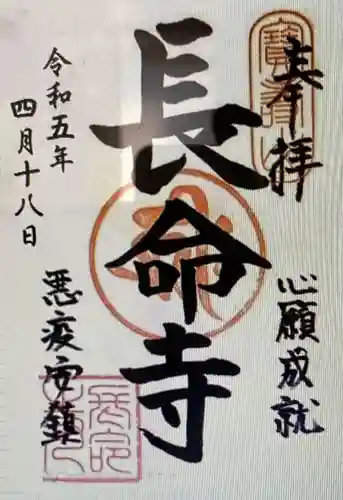 奉拝
心願成就
長命寺
令和五年
四月十八日
悪疫安鎮